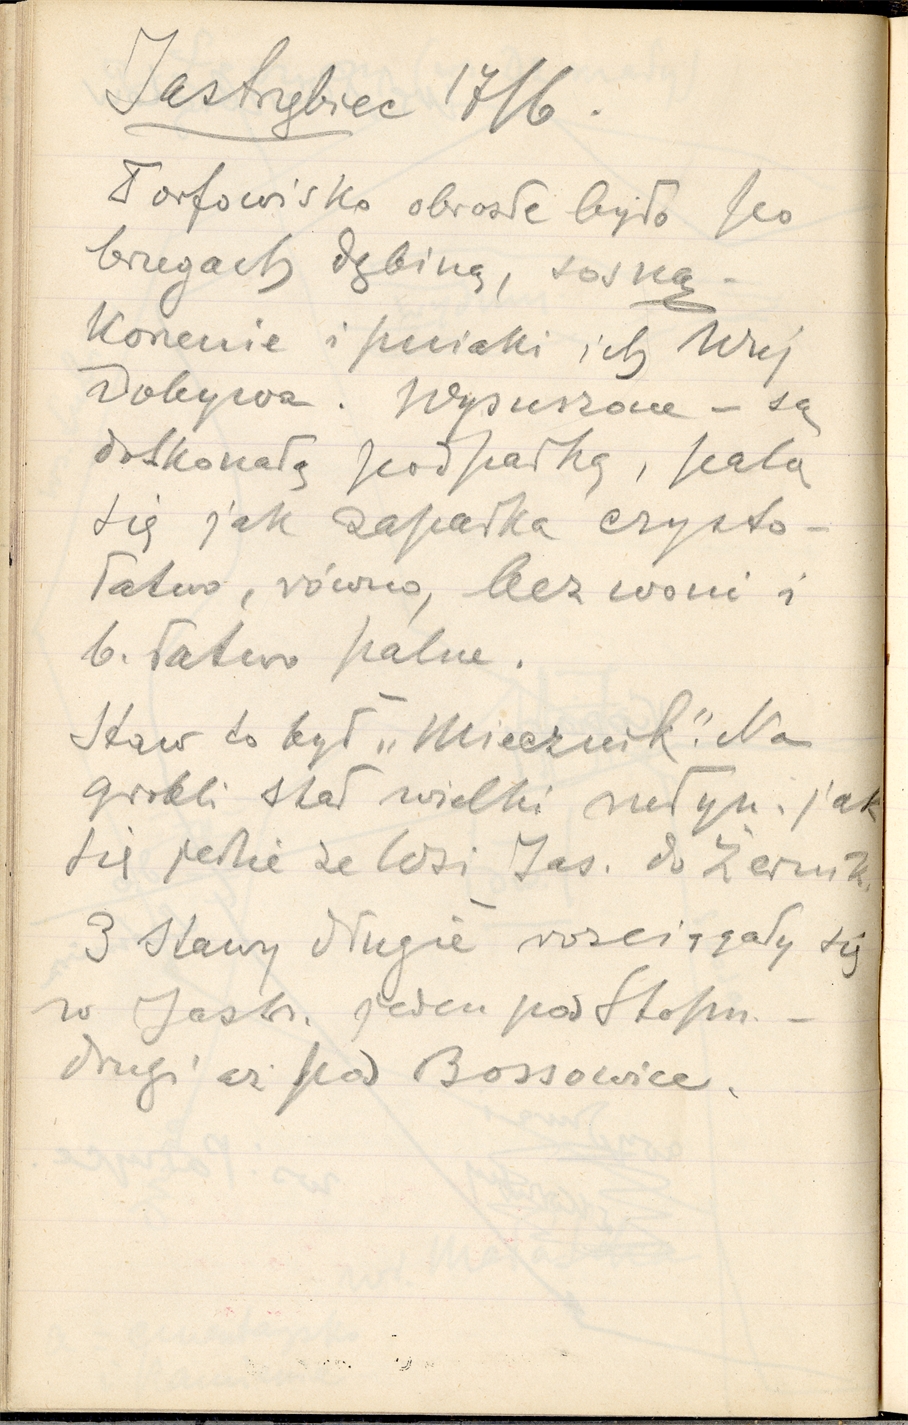 Jastrzębiec 17/6.
Torfowisko obrosłe było po
brzegach dębiną, sosną -
Korzenie i pniaki ich
Dobywa. Wysuszone - są
doskonałą podpałką, palą
się jak zapałka czysto -
łatwo, równo, bez woni i
b. łatwo palne.
Staw to był „Miecznik”. Na
grobli stał wielki młyn. jak
się jedzie ze wsi Jas. do Żernik.
3 stawy długie rozciągały się
w Jastr. jeden pod Stopn. -
drugi aż pod Bossowice.